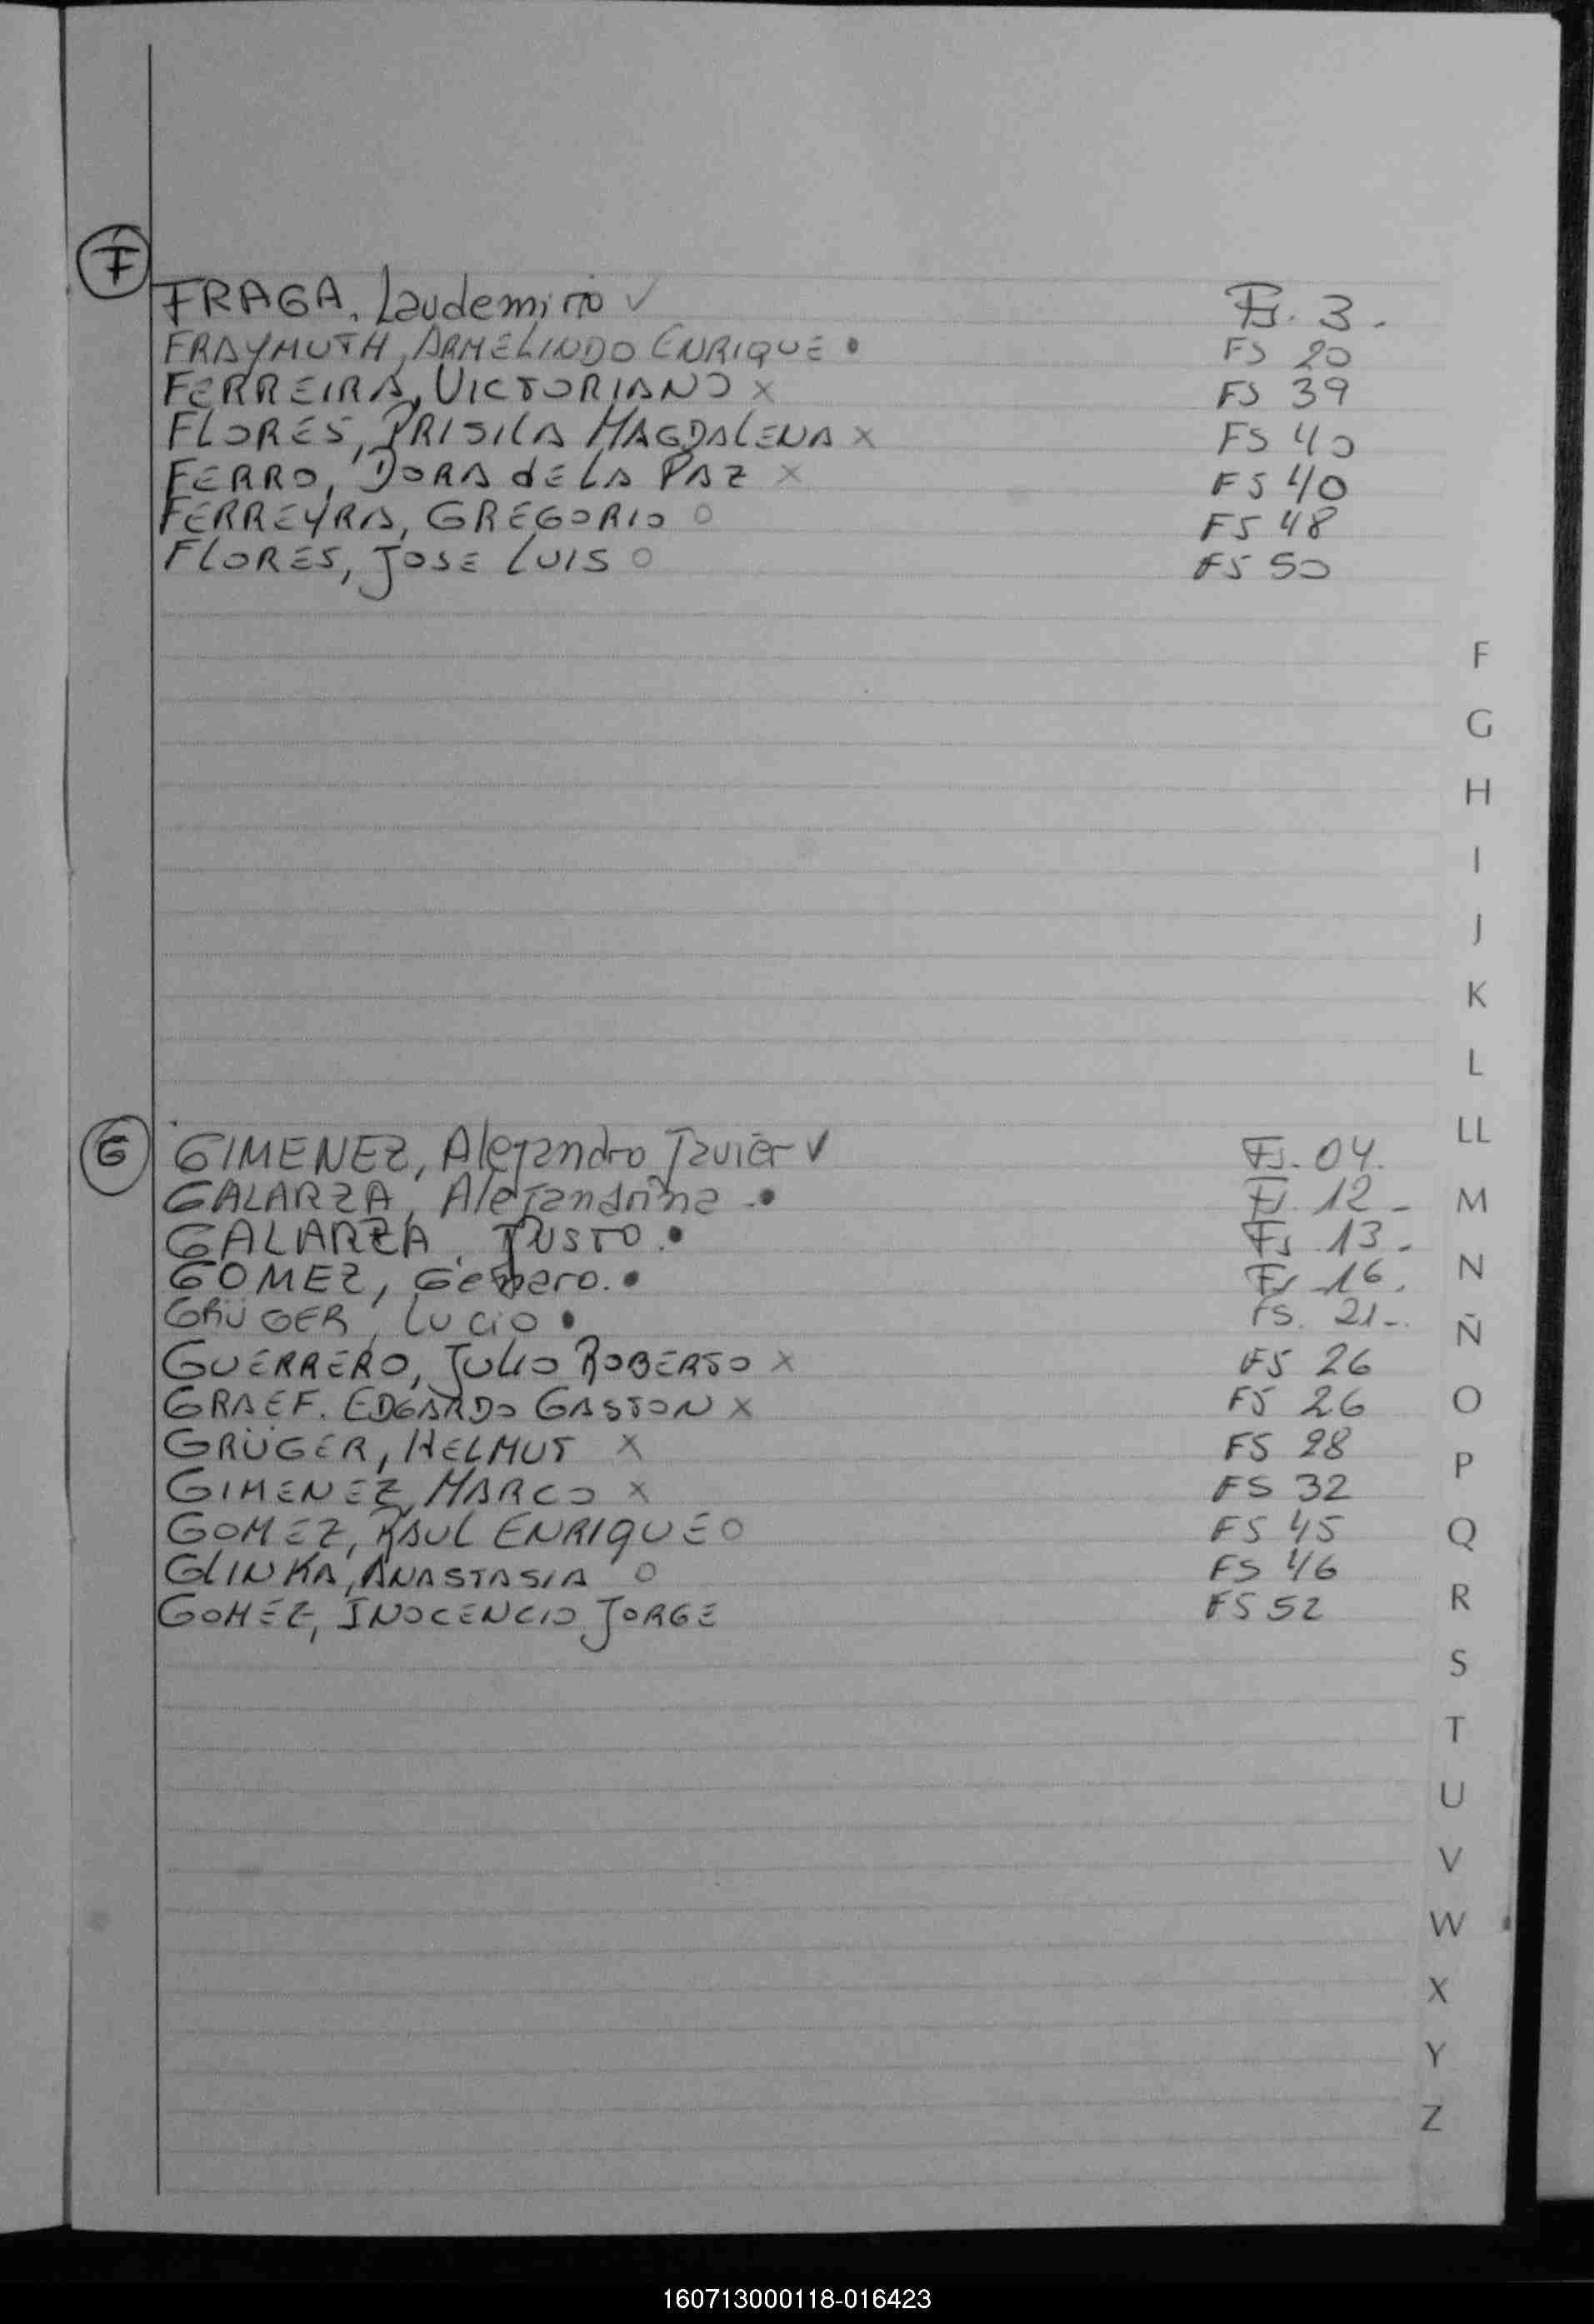 F
FRAGA, Laudemiro ✓ Fs. 3.
FRAYMUTH, ARMELINDO ENRIQUE • FS 20
FERREIRA, VICTORIANO x FS 39
FLORES, PRISILA MAGDALENA x FS 40
FERRO, DORA de LA PAZ x FS 40
FERREYRA, GREGORIO o FS 48
FLORES, JOSE LUIS o FS 50
F
G
H
I
J
K
L
LL
G
GIMENEZ, Alejandro Javier ✓ Fs. 04.
GALARZA, Alejandrina .• Fs. 12 -
M
GALARZA, JUSTO. • Fs 13 -
GOMEZ, Genaro. • Fs 16.
N
GRÜGER, LUCIO • FS. 21-.
Ñ
GUERRERO, JULIO ROBERTO x FS 26
GRAEF. EDGARDO GASTON x FS 26
O
GRÜGER, HELMUT x FS 28
P
GIMENEZ, MARCO x FS 32
GOMEZ, RAUL ENRIQUE o FS 45
Q
GLINKA, ANASTASIA o FS 46
GOMEZ, INOCENCIO JORGE FS 52
R
S
T
U
V
W
X
Y
Z
160713000118-016423